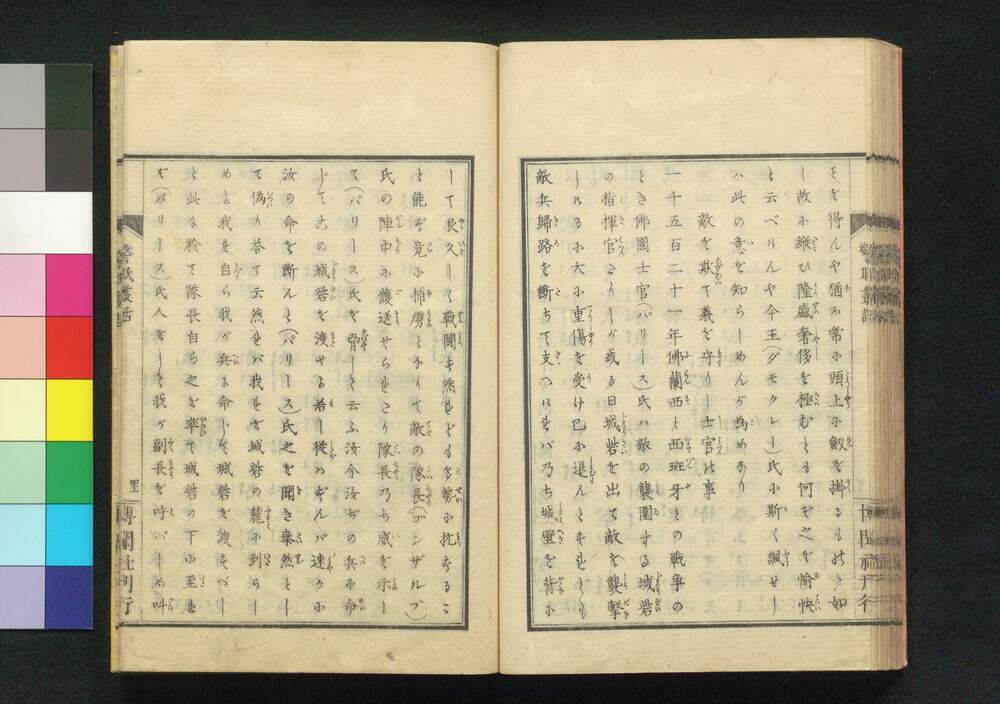 を得んや猶ホ常ニ頭上ニ劔を掛るものゝ如
し故ニ縦ひ隆盛奢侈を極むとも何ぞ之を愉快
と云べけんや今王(ダモクレー)氏ニ斯く諷せし
ハ此の意を知らしめんが為めなり
敵を欺て義を守りし士官の事
一千五百二十一年佛蘭西と西班牙との戦争の
とき佛國士官(パリース)氏ハ敵の襲圍する城砦
の指揮官たりしが或る日城砦を出て敵を襲撃
しけるニ大ニ重傷を受け已ニ退んとすれども
敵兵歸路を断ちて支へけれバ乃ち城壁を背ニ
して良久しく戰闘すれども多勢ニ抗すること
と能ず竟ニ捕虜となりて敵の隊長(ゴンザルブ)
氏の陣中ニ護送せられたり隊長乃ち威を示し
て(パリース)氏を脅して云ふ汝今汝ぢの兵ニ命
じて六の城砦を渡せよ若し従わずんバ速かニ
汝の命を断んと(パリース)氏之を聞き泰然とし
て偽り答て云然れバ我を城砦の麓ニ到らし
めよ我れ自ら我が兵ニ命じて城砦を渡すべし
と此に於て隊長自ら之を率て城砦の下ニ至れ
ば(パリース)氏人をして我が副長を呼バしめ叫
博聞社刊行